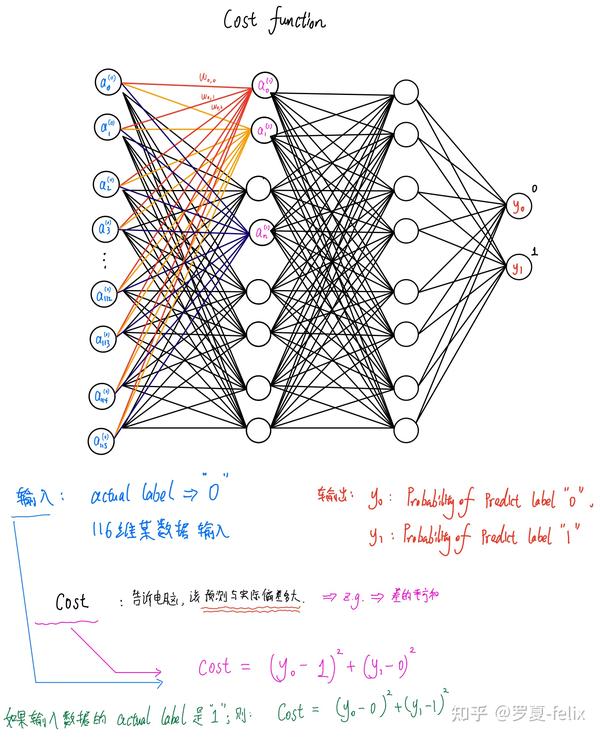 Cost function
w₀,₀
w₀,₁
w₀,₂
a₀⁽⁰⁾
a₁⁽⁰⁾
a₂⁽⁰⁾
a₃⁽⁰⁾
⋮
a₁₁₂⁽⁰⁾
a₁₁₃⁽⁰⁾
a₁₁₄⁽⁰⁾
a₁₁₅⁽⁰⁾
a₀⁽¹⁾
a₁⁽¹⁾
aₙ⁽¹⁾
y₀ 0
y₁ 1
输入: actual label ⇒ "0"
116维某数据 输入
输出: y₀: Probability of Predict label "0".
y₁: Probability of Predict label "1"
Cost : 告诉电脑, 该预测与实际偏差多大. ⇒ z.g. ⇒ 差的平方和
Cost = (y₀-1)²+(y₁-0)²
如果输入数据的 actual label 是"1"; 则: Cost = (y₀-0)²+(y₁-1)²
知乎 @罗夏-felix